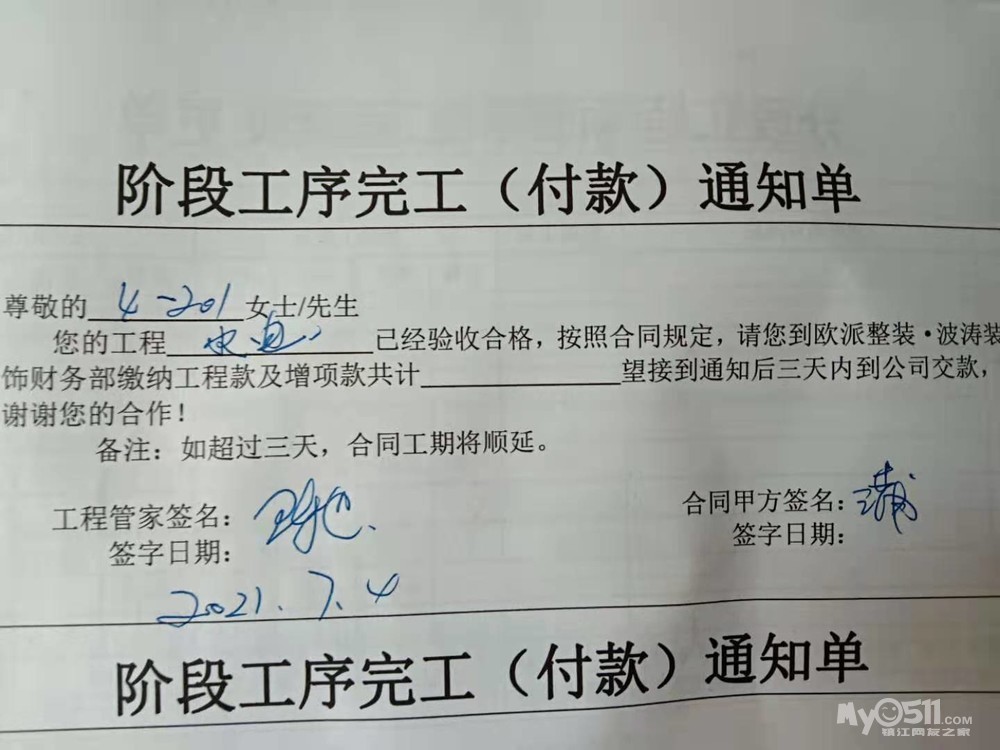 阶段工序完工（付款）通知单
尊敬的 4-201 女士/先生
您的工程 水电 已经验收合格，按照合同规定，请您到欧派整装·波涛装
饰财务部缴纳工程款及增项款共计 望接到通知后三天内到公司交款，
谢谢您的合作！
备注：如超过三天，合同工期将顺延。
工程管家签名：
合同甲方签名：
签字日期：
签字日期：
2021.7.4
阶段工序完工（付款）通知单
My0511.COM
镇江网友之家